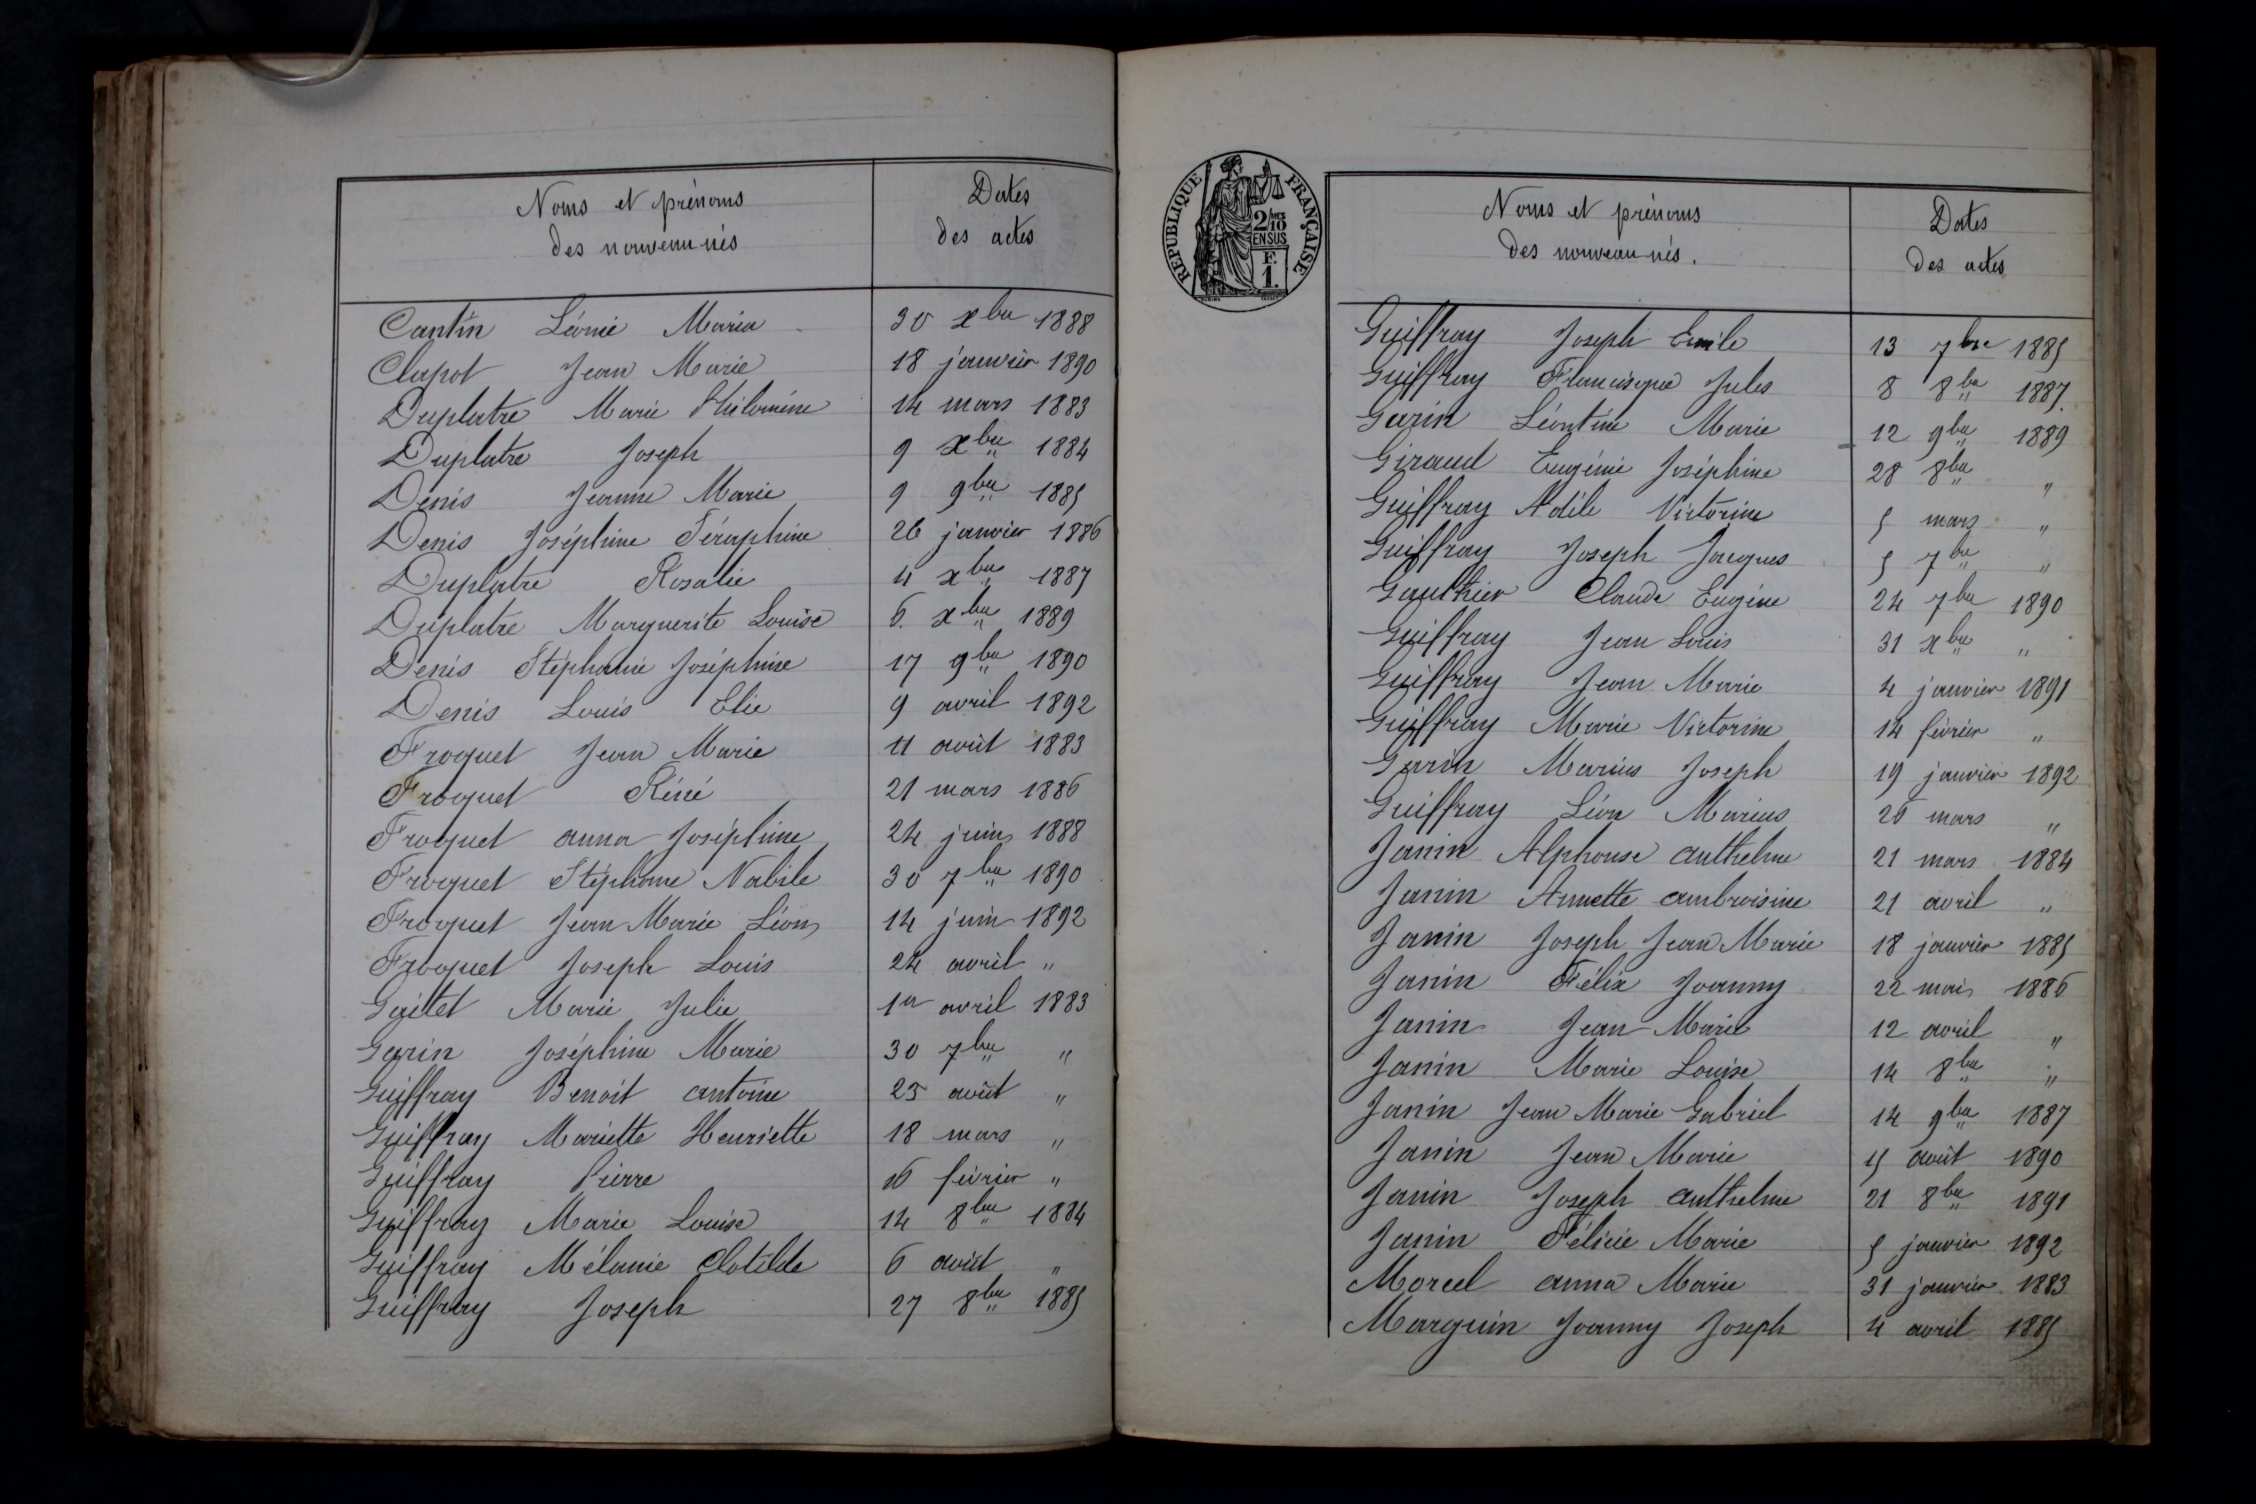 Noms et prénoms
des nouveau-nés
Dates
des actes
Cantin Léonie Maria 30 xbre 1888
Clapot Jean Marie 18 janvier 1890
Duplatre Marie Philomène 14 mars 1883
Duplatre Joseph 9 xbre 1884
Denis Jeanne Marie 9 9bre 1885
Denis Joséphine Séraphine 26 janvier 1886
Duplatre Rosalie 4 xbre 1887
Duplatre Marguerite Louise 6 xbre 1889
Denis Stéphanie Joséphine 17 9bre 1890
Denis Louis Elie 9 avril 1892
Froquet Jean Marie 11 août 1883
Froquet Réné 21 mars 1886
Froquet anna Joséphine 24 juin 1888
Froquet Stéphane Nabile 30 7bre 1890
Froquet Jean Marie Léon 14 juin 1892
Froquet Joseph Louis 24 avril "
Gaillet Marie Julie 1er avril 1883
Garin Joséphine Marie 30 7bre "
Guiffray Benoit antoine 25 août "
Guiffray Mariette Henriette 18 mars "
Guiffray Pierre 16 février "
Guiffray Marie Louise 14 8bre 1884
Guiffray Mélanie Clotilde 6 août "
Guiffray Joseph 27 8bre 1885
REPUBLIQUE FRANÇAISE
2/10
EN SUS
F.
1.
Noms et prénoms
des nouveau-nés.
Dates
des actes
Guiffray Joseph Emile 13 7bre 1885
Guiffray Francisque Jules 8 8bre 1887
Garin Léontine Marie 12 9bre 1889
Giraud Eugénie Joséphine 28 8bre "
Guiffray Adèle Victorine 5 mars "
Guiffray Joseph Jacques 5 7bre "
Gauthier Claude Eugène 24 7bre 1890
Guiffray Jean Louis 31 xbre "
Guiffray Jean Marie 4 janvier 1891
Guiffray Marie Victorine 14 février "
Garin Marius Joseph 19 janvier 1892
Guiffray Léon Marius 26 mars "
Janin Alphonse anthelme 21 mars 1884
Janin Annette ambroisine 21 avril "
Janin Joseph Jean Marie 18 janvier 1885
Janin Félix Joanny 22 mai 1886
Janin Jean Marie 12 avril "
Janin Marie Louise 14 8bre "
Janin Jean Marie Gabriel 14 9bre 1887
Janin Jean Marie 15 août 1890
Janin Joseph anthelme 21 8bre 1891
Janin Félicie Marie 5 janvier 1892
Morel anna Marie 31 janvier 1883
Marguin Joanny Joseph 4 avril 1885